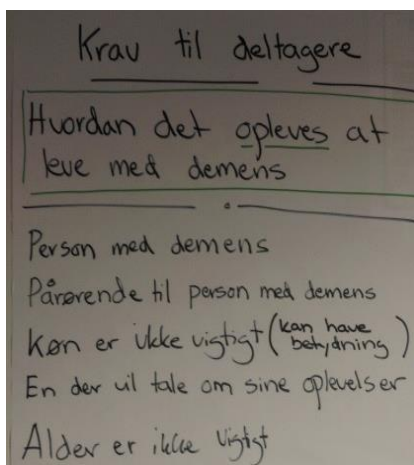 Krav til deltagere
Hvordan det opleves at
leve med demens
Person med demens
Pårørende til person med demens
Køn er ikke vigtigt (kan have betydning)
En der vil tale om sine oplevelser
Alder er ikke vigtigt